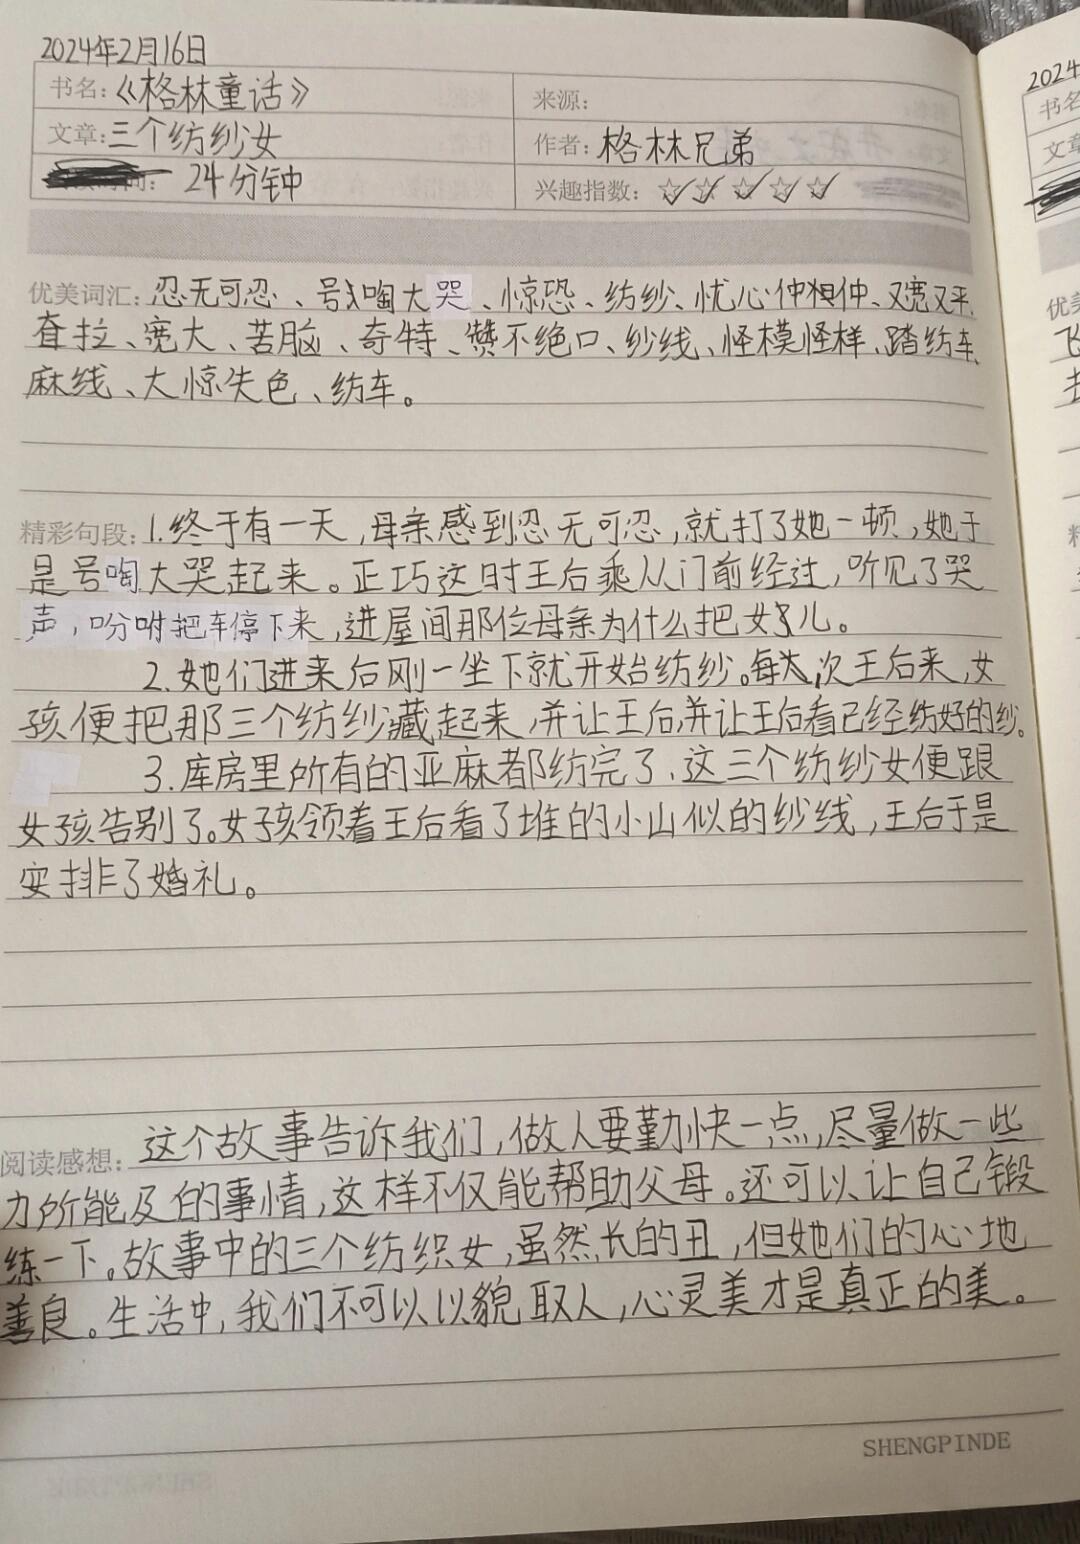 2024年2月16日
书名：《格林童话》 来源：
文章：三个纺纱女 作者：格林兄弟
24分钟 兴趣指数：☆☆☆☆☆
优美词汇：忍无可忍、号啕大哭、惊恐、纺纱、忧心忡忡、又宽又平、
耷拉、宽大、苦脑、奇特、赞不绝口、纱线、怪模怪样、踏纺车、
麻线、大惊失色、纺车。
精彩句段：1.终于有一天,母亲感到忍无可忍,就打了她一顿,她于
是号啕大哭起来。正巧这时王后乘从门前经过,听见了哭
声,吩咐把车停下来,进屋间那位母亲为什么把女儿。
2.她们进来后刚一坐下就开始纺纱。每次王后来,女
孩便把那三个纺纱藏起来,并让王后,并让王后看已经纺好的纱。
3.库房里所有的亚麻都纺完了、这三个纺纱女便跟
女孩告别了。女孩领着王后看了堆的小山似的纱线,王后于是
安排了婚礼。
阅读感想：这个故事告诉我们,做人要勤快一点,尽量做一些
力所能及的事情,这样不仅能帮助父母。还可以让自己锻
练一下。故事中的三个纺织女,虽然长的丑,但她们的心地
善良。生活中,我们不可以以貌取人,心灵美才是真正的美。
SHENGPINDE
2024
书名
文章
优美
飞